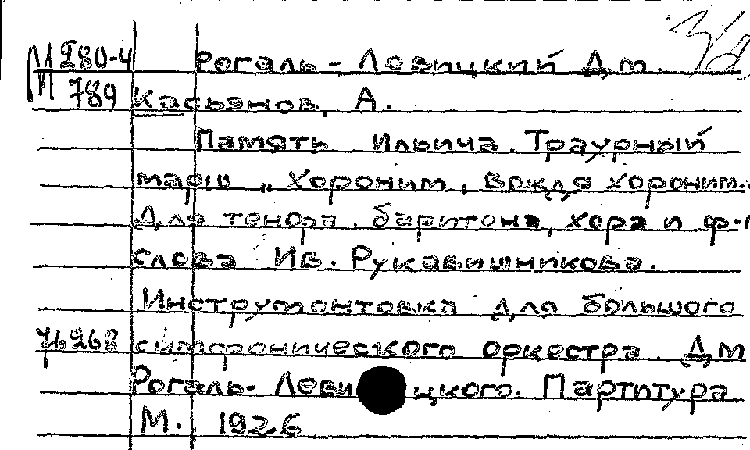 М 280-4 Рогаль-Левицкий Дм.
П 789 Касьянов, А.
Память Ильича. Траурный
марш „Хороним, вождя хороним.
Для тенора, баритона, хора и ф-п
слова Ив. Рукавишникова.
Инструментовка для большого
симфонического оркестра Дм
Рогаль-Левицкого. Партитура
М. 1926